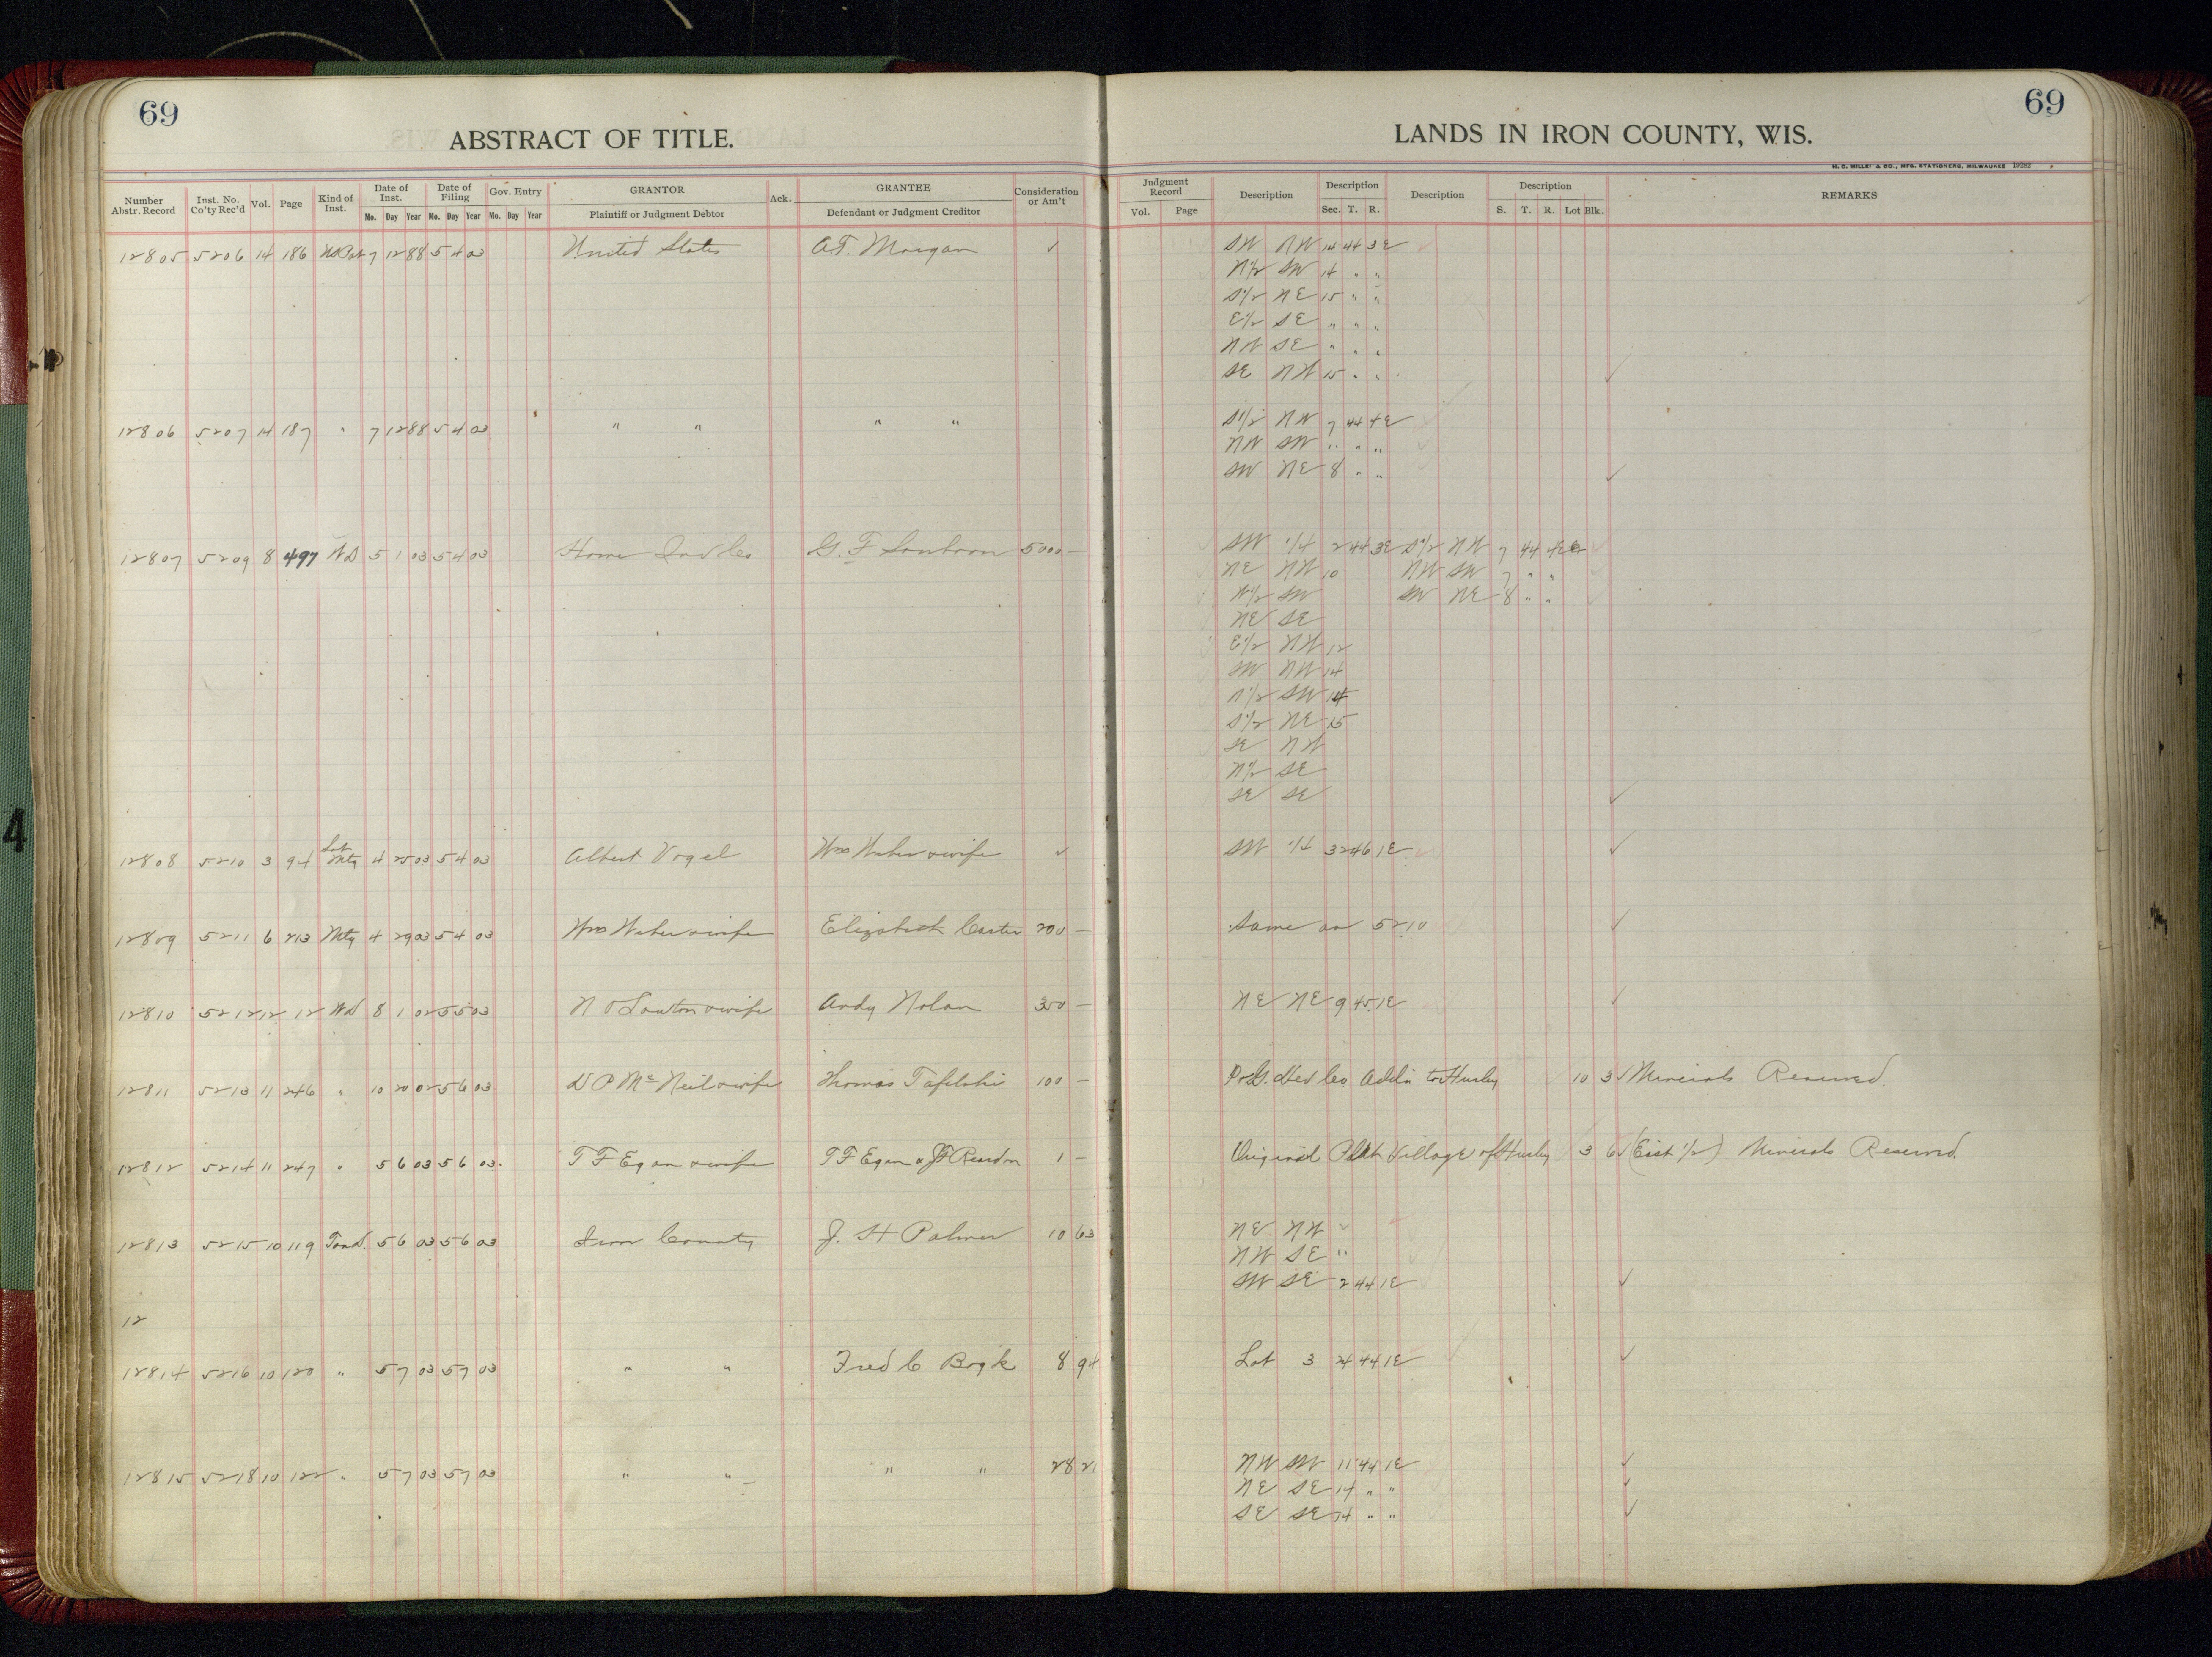 69
69
ABSTRACT OF TITLE.
LANDS IN IRON COUNTY, WIS.
H. C. MILLER & CO., MFG. STATIONERS, MILWAUKEE 19282
Number Abstr. Record
Inst. No. Co'ty Rec'd
Vol.
Page
Kind of Inst.
Date of Inst.
Mo. Day Year
Date of Filing
Mo. Day Year
Gov. Entry
Mo. Day Year
GRANTOR
Plaintiff or Judgment Debtor
Ack.
GRANTEE
Defendant or Judgment Creditor
Consideration or Am't
Judgment Record
Vol. Page
Description
Description
Sec. T. R.
Description
Description
S. T. R. Lot Blk.
REMARKS
12805 5206 14 186 US Pat 7 12 88 5 4 03 United States A.F. Morgan ✓ SW NW 14 44 3E
N 1/2 SW 14 " "
S 1/2 NE 15 " "
E 1/2 SE " " "
NW SE " " "
SE NW 15 " " ✓
12806 5207 14 187 " 7 12 88 5 4 03 " " " " S 1/2 NW 7 44 4E
NW SW " " "
SW NE 8 " " ✓
12807 5209 8 497 WD 5 1 03 5 4 03 5000 — SW 1/4 2 44 3E S 1/2 NW 7 44 4E
NE NW 10 NW SW 7 " "
W 1/2 SW SW NE 8 " "
NE SE
E 1/2 NW 12
SW NW 14
N 1/2 SW 14
S 1/2 NE 15
SE NW
N 1/2 SE
SE SE ✓
12808 5210 3 94 Sat Mtg 4 25 03 5 4 03 Albert Vogel Wm Weber & wife ✓ SW 1/4 32 46 1E ✓
12809 5211 6 213 Mtg 4 29 03 5 4 03 Wm Weber & wife Elizabeth Carter 200 — Same as 5210 ✓
12810 5212 12 12 WD 8 1 02 5 5 03 N O Lawton & wife Andy Nolan 350 — NE NE 9 45 1E ✓
12811 5213 11 246 " 10 20 02 5 6 03 D P McNeil & wife Thomas Tafelski 100 — Addn to Hurley 10 3 ✓ Minerals Reserved.
12812 5214 11 247 " 5 6 03 5 6 03 T F Egan & wife T F Egan & JF Reardon 1 — Original Platt Village of Hurley 3 6 ✓ (East 1/2) Minerals Reserved.
12813 5215 10 119 Tax D. 5 6 03 5 6 03 Iron County J. H Palmer 10 63 NE NW "
NW SE "
SW SE 2 44 1E ✓
12
12814 5216 10 120 " 5 7 03 5 7 03 " " Fred C Bogk 8 94 Lot 3 24 44 1E ✓
12815 5218 10 122 " 5 7 03 5 7 03 " " " " 28 21 NW SW 11 44 1E ✓
NE SE 14 " " ✓
SE SE 14 " " ✓
4